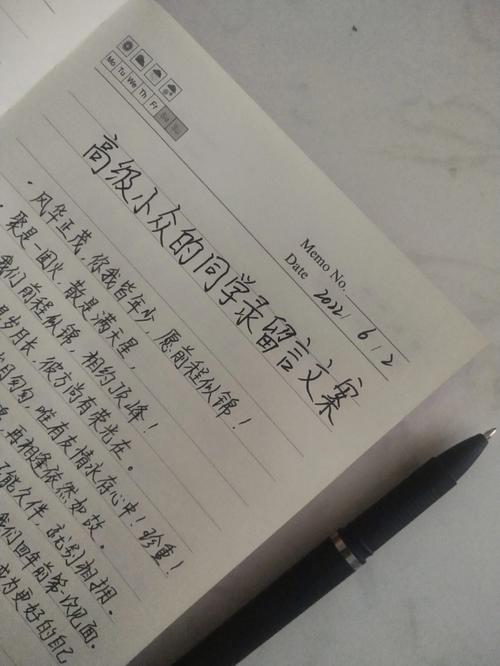 Mo Tu We Th Fr Sa Su
Memo No.
Date 2022/ 6 / 2
高级小众的同学录留言文案
·风华正茂,你我皆年少,愿前程似锦!
·聚是一团火,散是满天星,
我们前程似锦,相约顶峰!
是岁月长,彼方尚有荣光在。
月匆匆,唯有友情永存心中!珍重!
再相逢依然如故。
不能久伴,就别相拥。
我们四年前第一次见面。
成为更好的自己